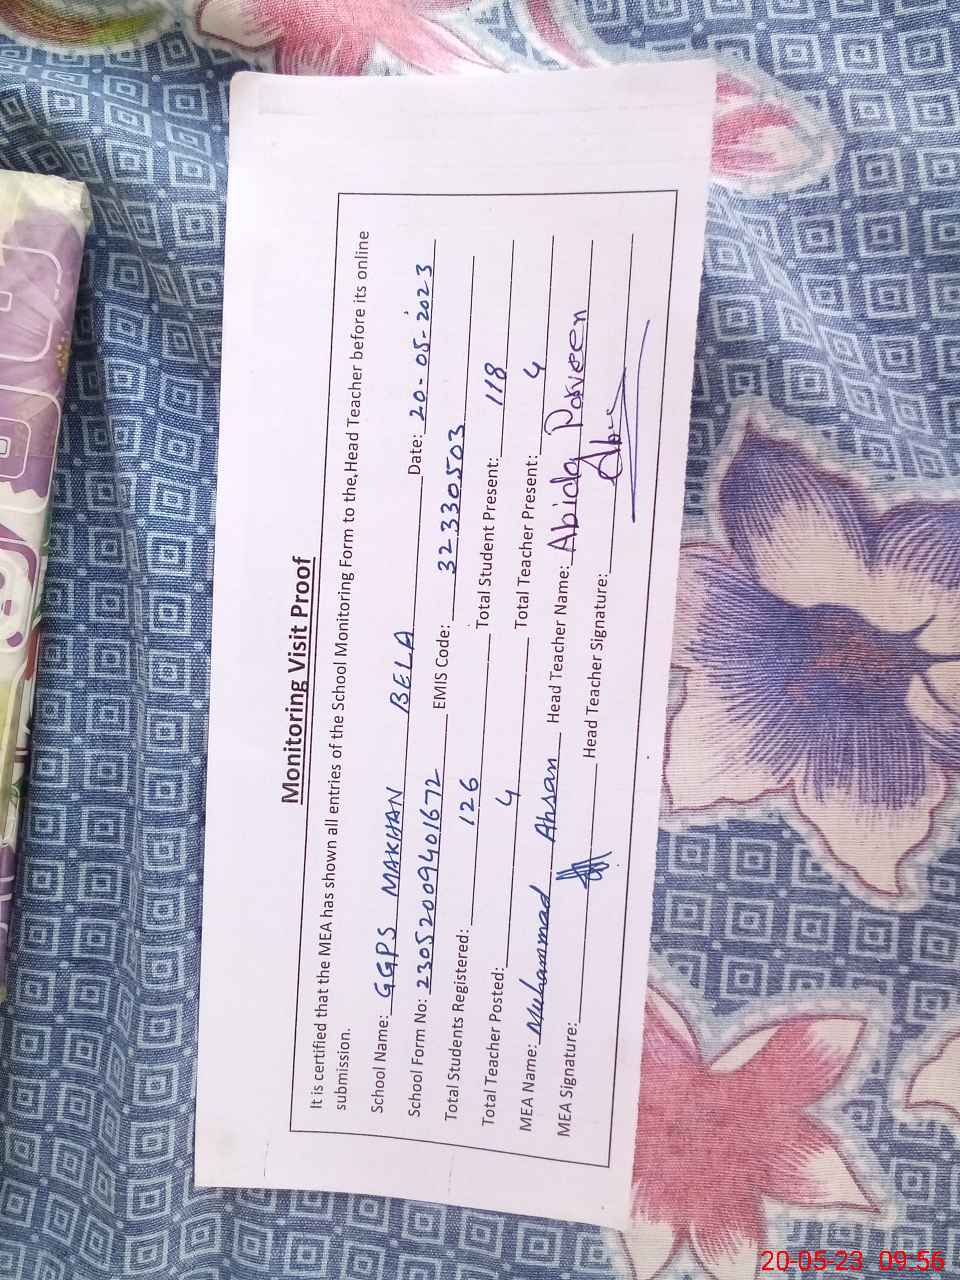 Monitoring Visit Proof
It is certified that the MEA has shown all entries of the School Monitoring Form to the Head Teacher before its online
submission.
School Name: GGPS MAKHAN BELA Date: 20-05-2023
School Form No: 23052009401672 EMIS Code: 32330503
Total Students Registered: 126 Total Student Present: 118
Total Teacher Posted: 4 Total Teacher Present: 4
MEA Name: Muhammad Ahsan Head Teacher Name: Abida Parveen
MEA Signature: Head Teacher Signature:
20-05-23 09:56